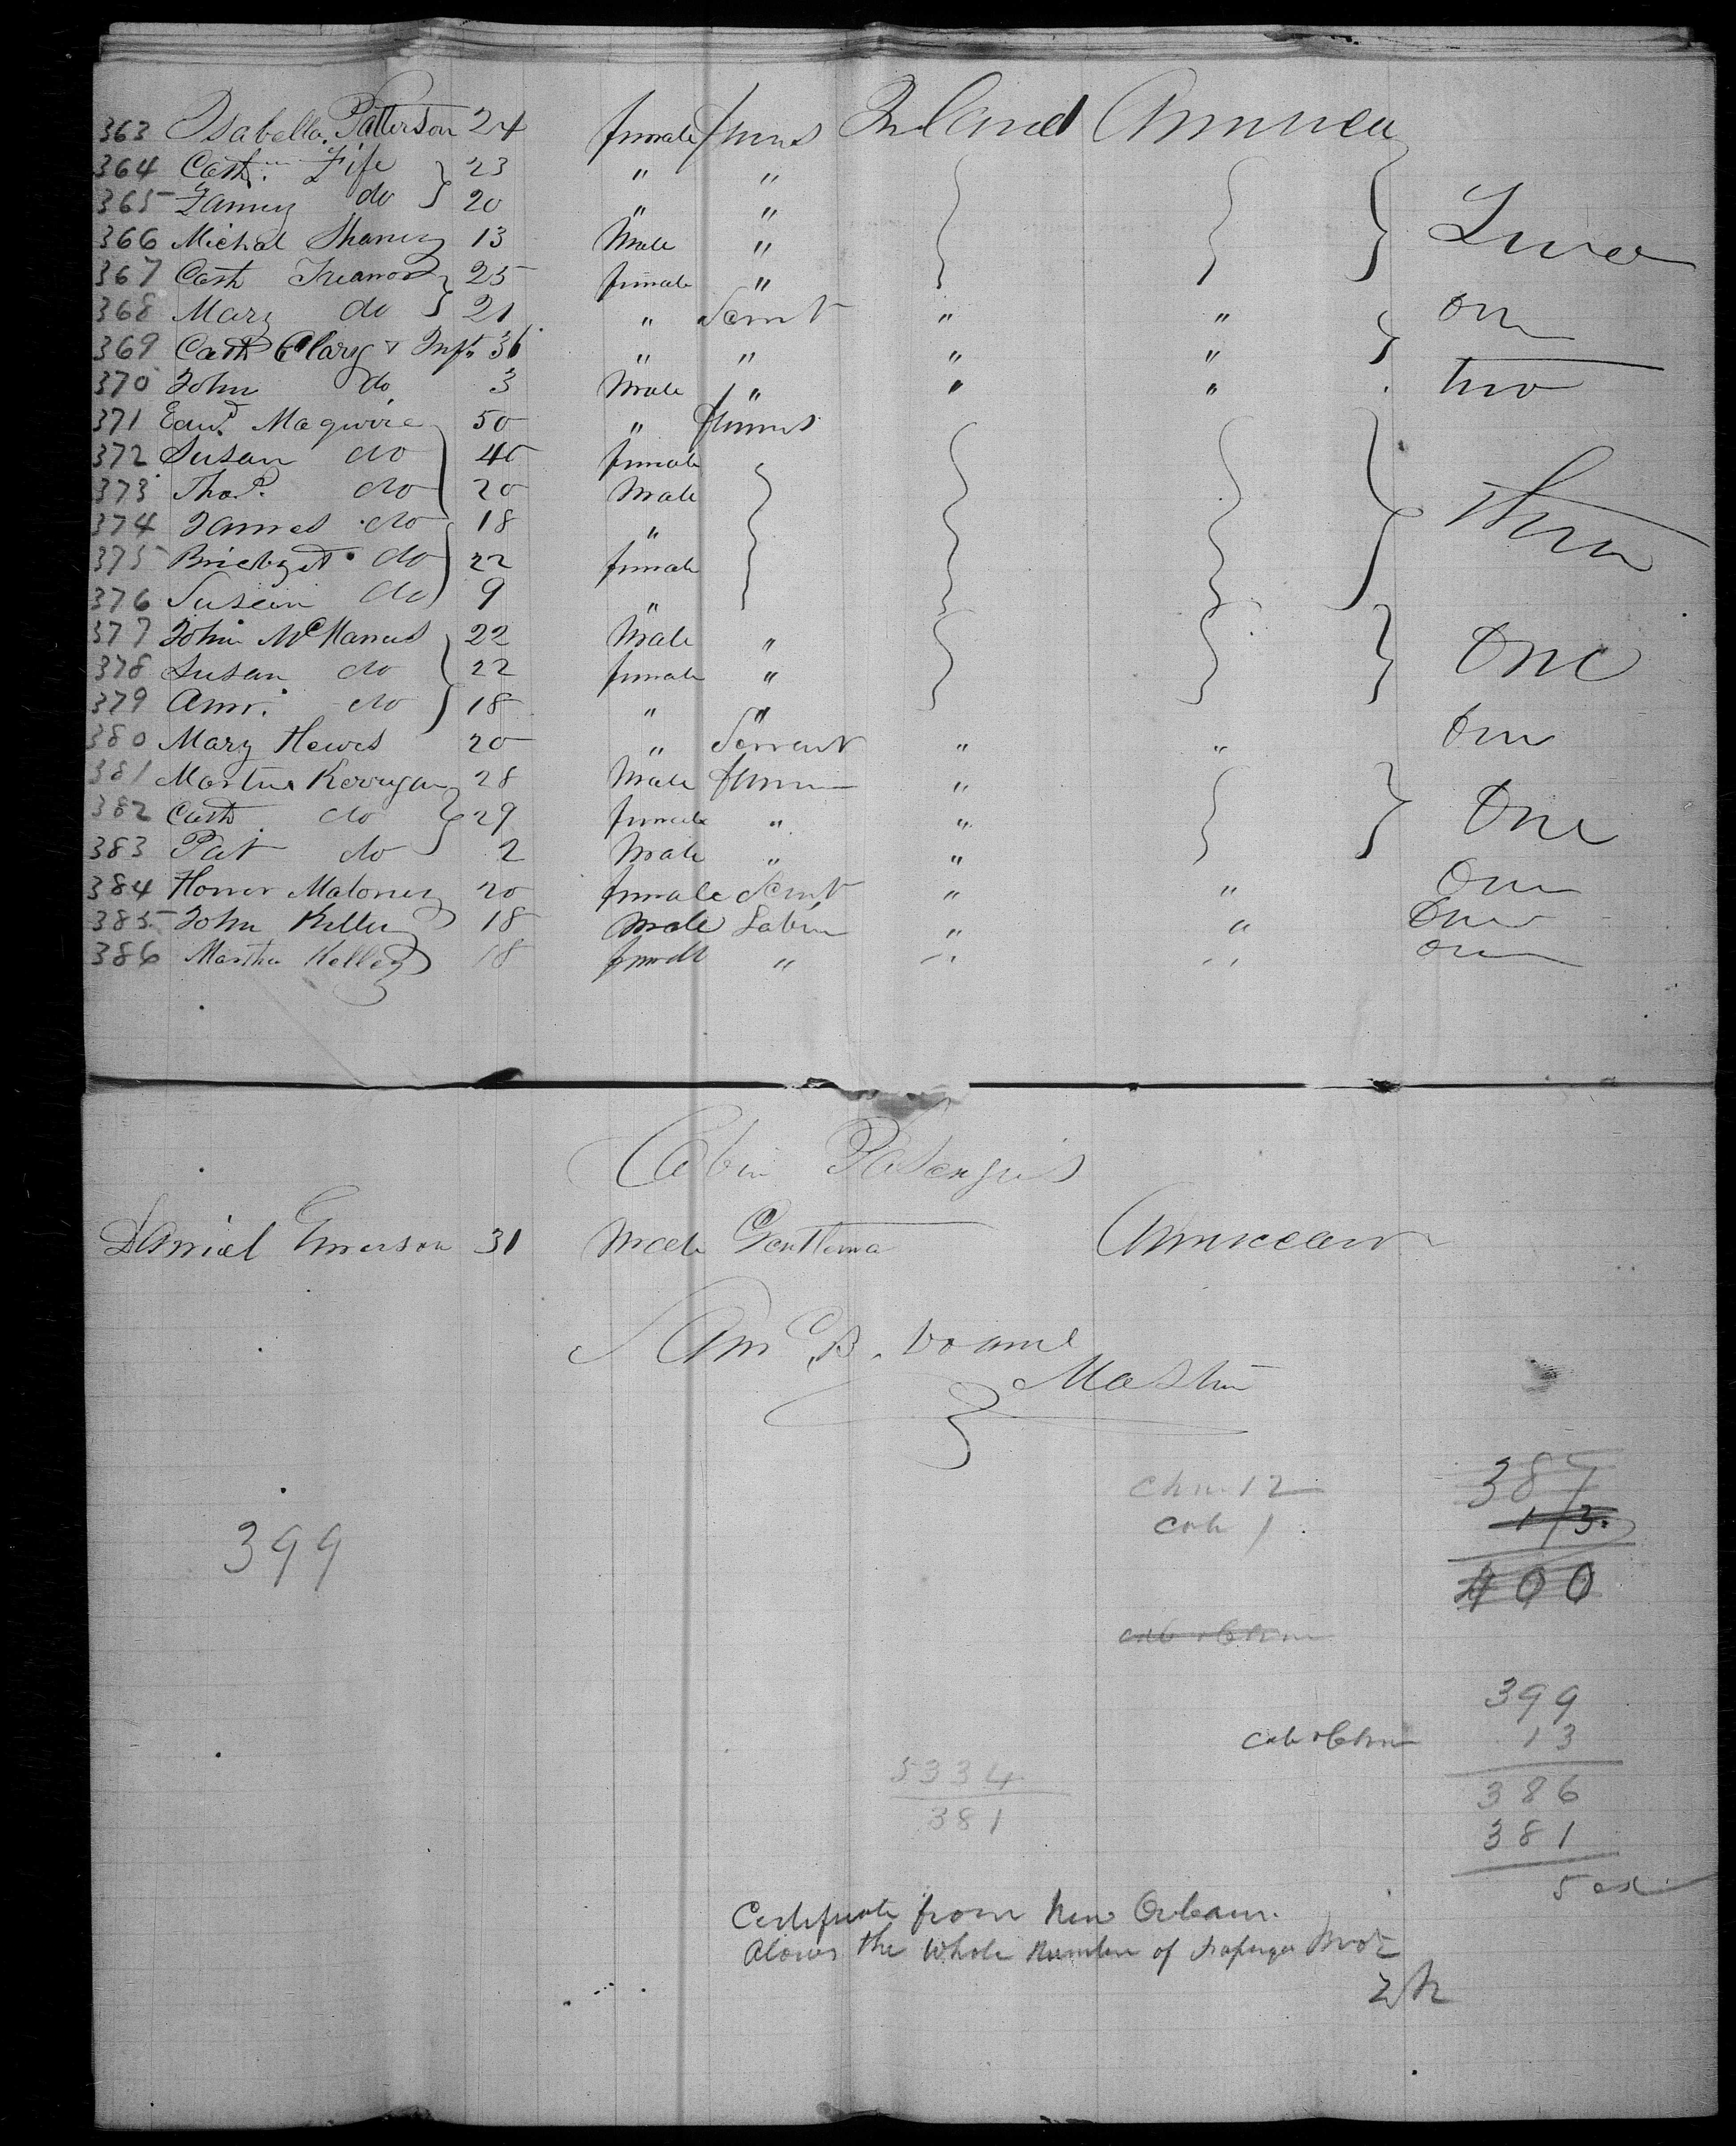 363 Isabella Patterson 24 female Ireland America
364 Cath. Fife 23 " "
365 Fanny do 20 " "
366 Michal Sharney 13 Male " Two
367 Cath Treanor 25 female "
368 Mary do 21 " Sernt " " One
369 Cath Clary & Inft 36 " " " "
370 John do 3 Male " " " two
371 Edwd. Maguire 50 "
372 Susan do 45 female
373 Thos. do 20 Male
374 James do 18 " Three
375 Bridget do 22 female
376 Susan do 9 "
377 John McManus 22 Male " One
378 Susan do 22 female "
379 Ann. do 18 " "
380 Mary Hewes 20 " Servant " " One
381 Martin Kerrigan 28 Male "
382 Cath do 29 female " " One
383 Pat do 2 Male " "
384 Honor Maloney 20 female Sernt " " One
385 John Kelley 18 Male Labr " " One
386 Martha Kelley 18 female " " " one
Cabin Pasengers
Daniel Emerson 31 Male Gentleman American
B. Doane
Master
chn 12 387
cab 1 13
399 400
cab & chn
399
cab & chn 13
5334 386
381 381
5
Certificate from New Orleans.
Alows the Whole Number of